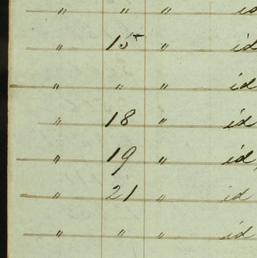 " " " id
" 15 " id
" " " id
" 18 " id
" 19 " id
" 21 " id
" " " id